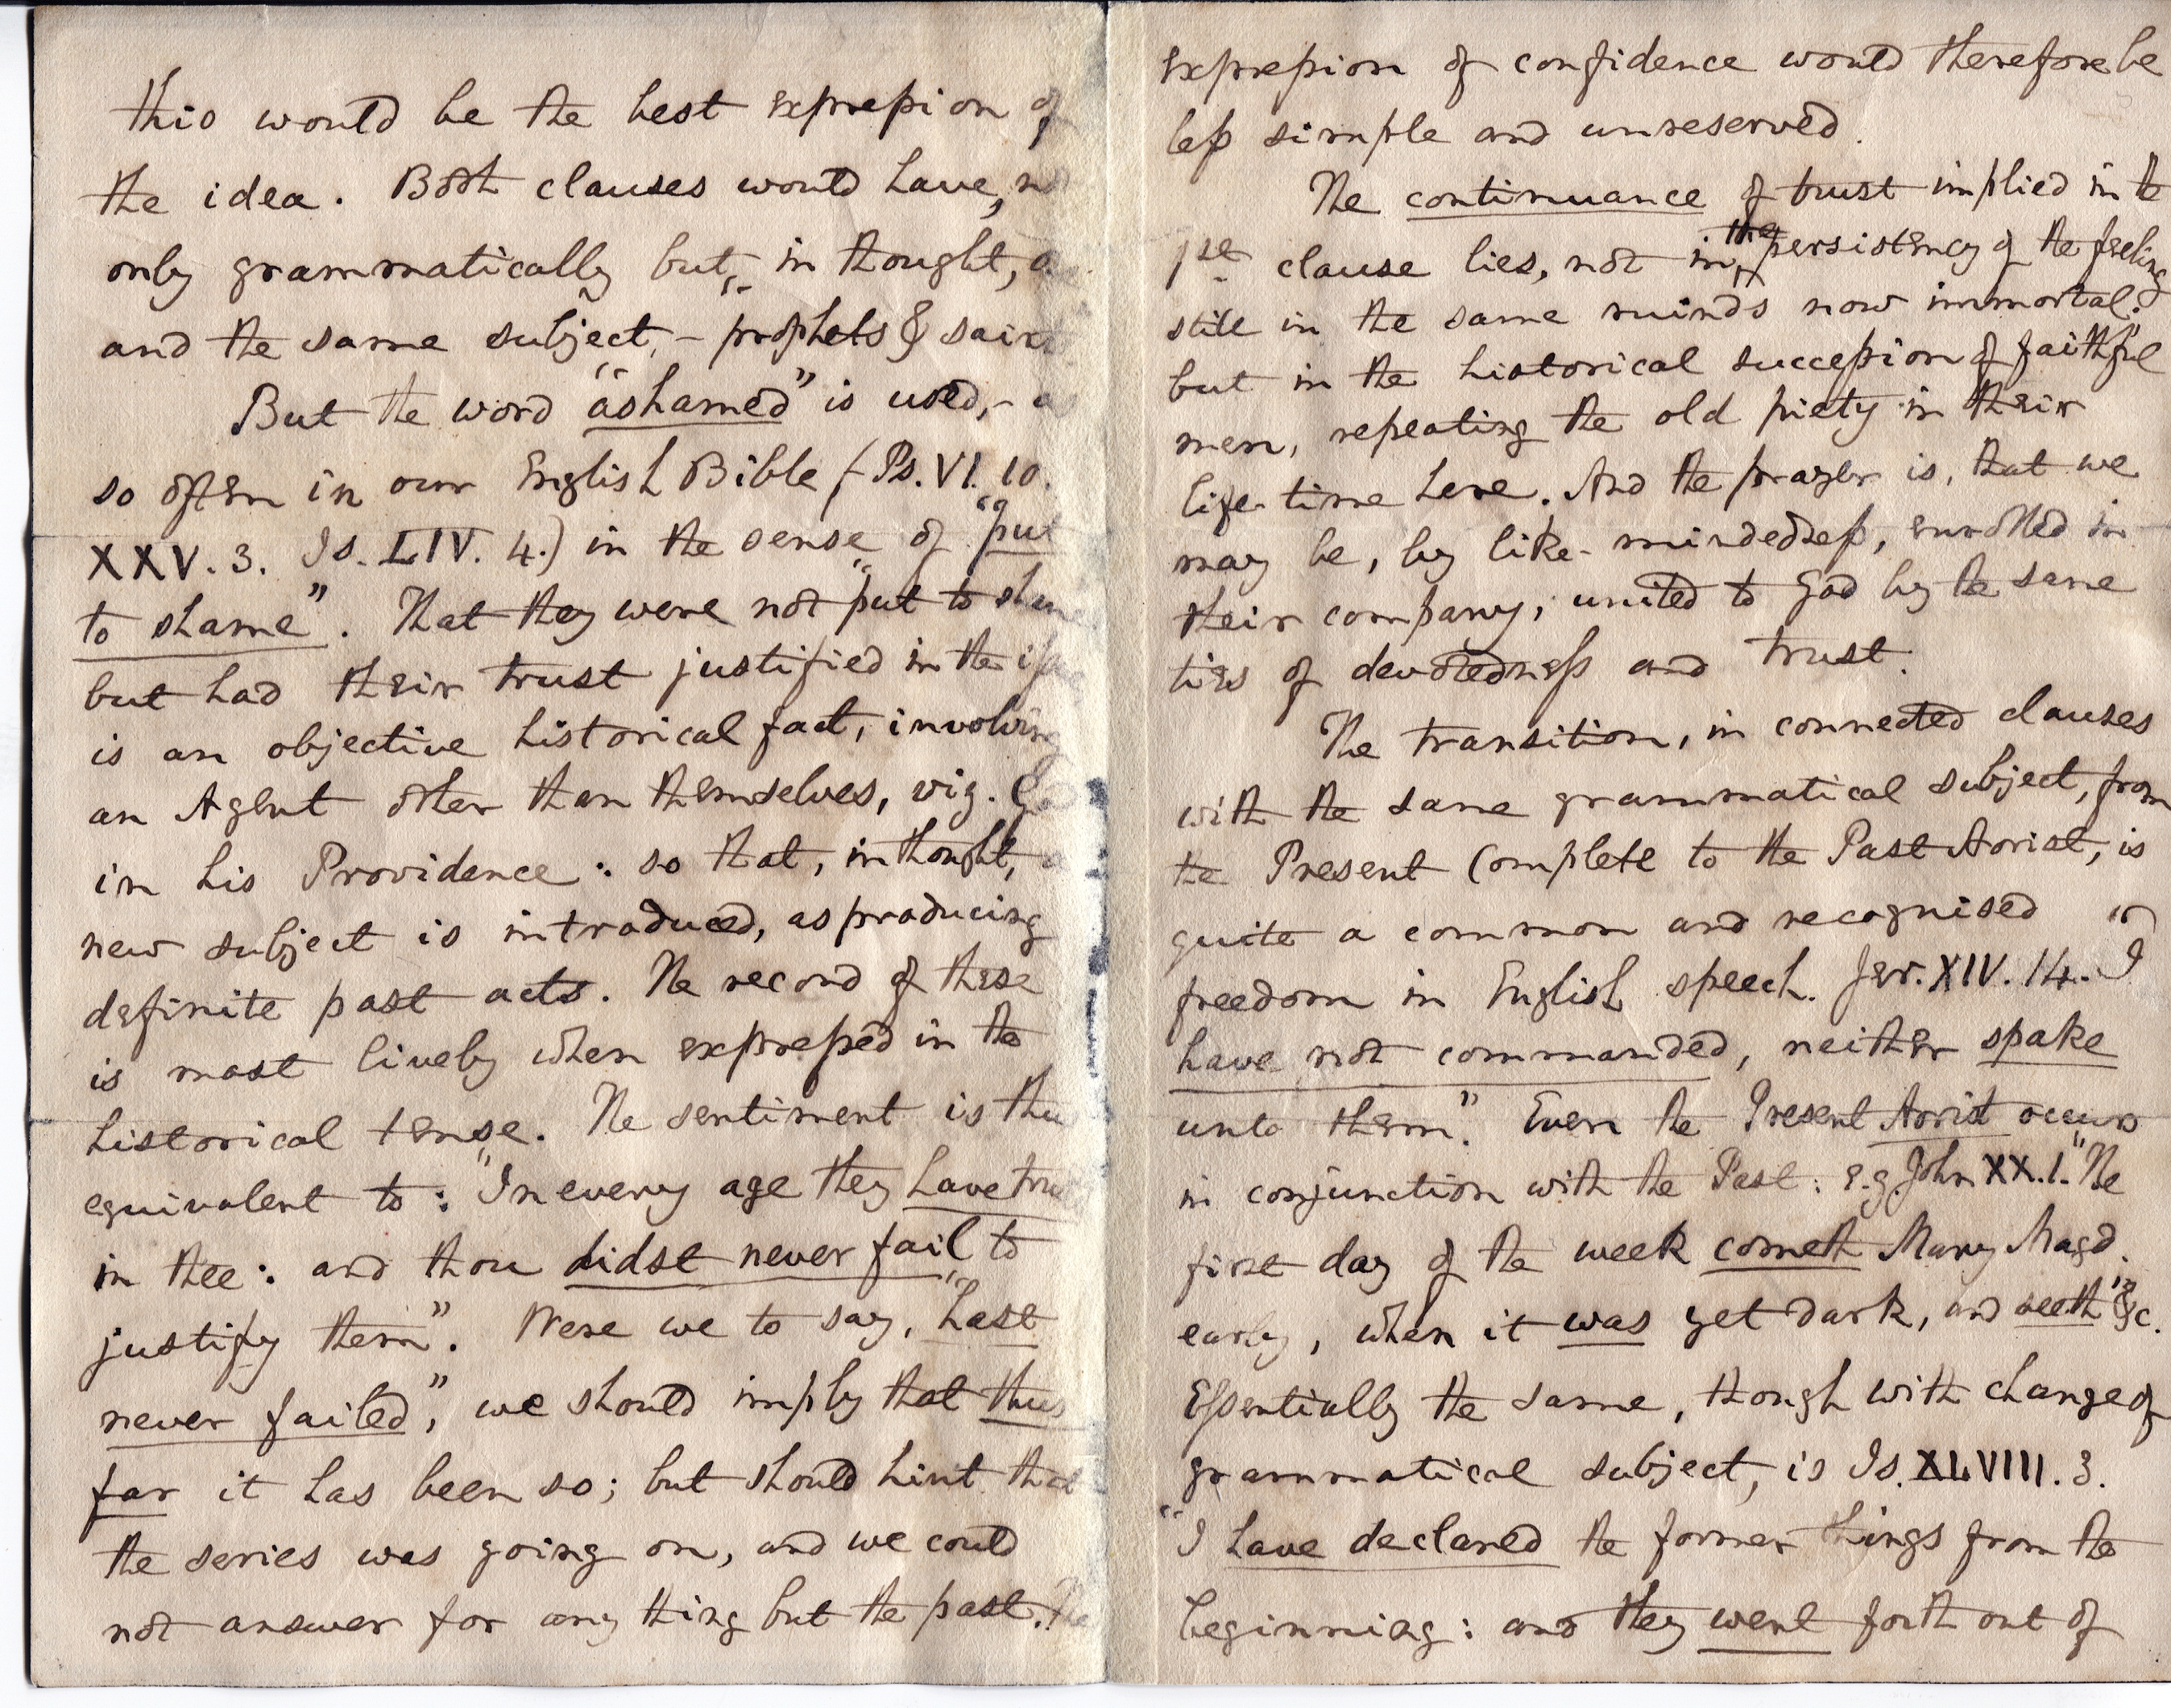 this would be the best expression of
the idea. Both clauses would have, not
only grammatically but, in thought, one
and the same subject, - prophets & saints
But the word "ashamed" is used, - as
so often in our English Bible (Ps. VI. 10.
XXV. 3. Is. LIV. 4.) in the sense of "put
to shame". That they were not "put to shame
but had their trust justified in the issue
is an objective historical fact, involving
an Agent other than themselves, viz. God
in his Providence: so that, in thought, a
new subject is introduced, as producing
definite past acts. The record of these
is most lively when expressed in the
historical tense. The sentiment is thus
equivalent to: "In every age they have trust
in thee: and thou didst never fail to
justify them". Were we to say, "hast
never failed", we should imply that thus
far it has been so; but should hint that
the series was going on, and we could
not answer for any thing but the past. The
expression of confidence would therefore be
less simple and unreserved.
The continuance of trust implied in the
1st clause lies, not in the persistency of the feeling
still in the same minds now immortal;
but in the historical succession of faithful
men, repeating the old piety in their
life-time here. And the prayer is, that we
may be, by like-mindedness, enrolled in
their company, united to God by the same
ties of devotedness and trust.
The transition, in connected clauses
with the same grammatical subject, from
the Present Complete to the Past Aorist, is
quite a common and recognised
freedom in English speech. Jer. XIV. 14. "I
have not commanded, neither spake
unto them". Even the Present Aorist occurs
in conjunction with the Past: e.g. John XX. 1. "The
first day of the week cometh Mary Magd.
early, when it was yet dark, and seeth" &c.
Essentially the same, though with change of
grammatical subject, is Is. XLVIII. 3.
"I have declared the former things from the
beginning: and they went forth out of